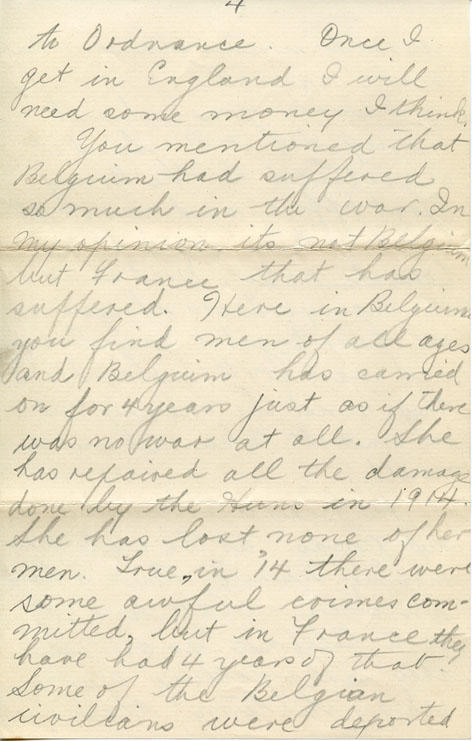 4
to Ordnance. Once I
get in England I will
need some money I think.
You mentioned that
Belgium had suffered
so much in the war. In
my opinion its not Belgium
but France that has
suffered. Here in Belgium
you find men of all ages
and Belgium has carried
on for 4 years just as if there
was no war at all. She
has repaired all the damage
done by the Huns in 1914.
She has lost none of her
men. True, in '14 there were
some awful crimes com-
mitted, but in France they
have had 4 years of that.
Some of the Belgian
civilians were deported